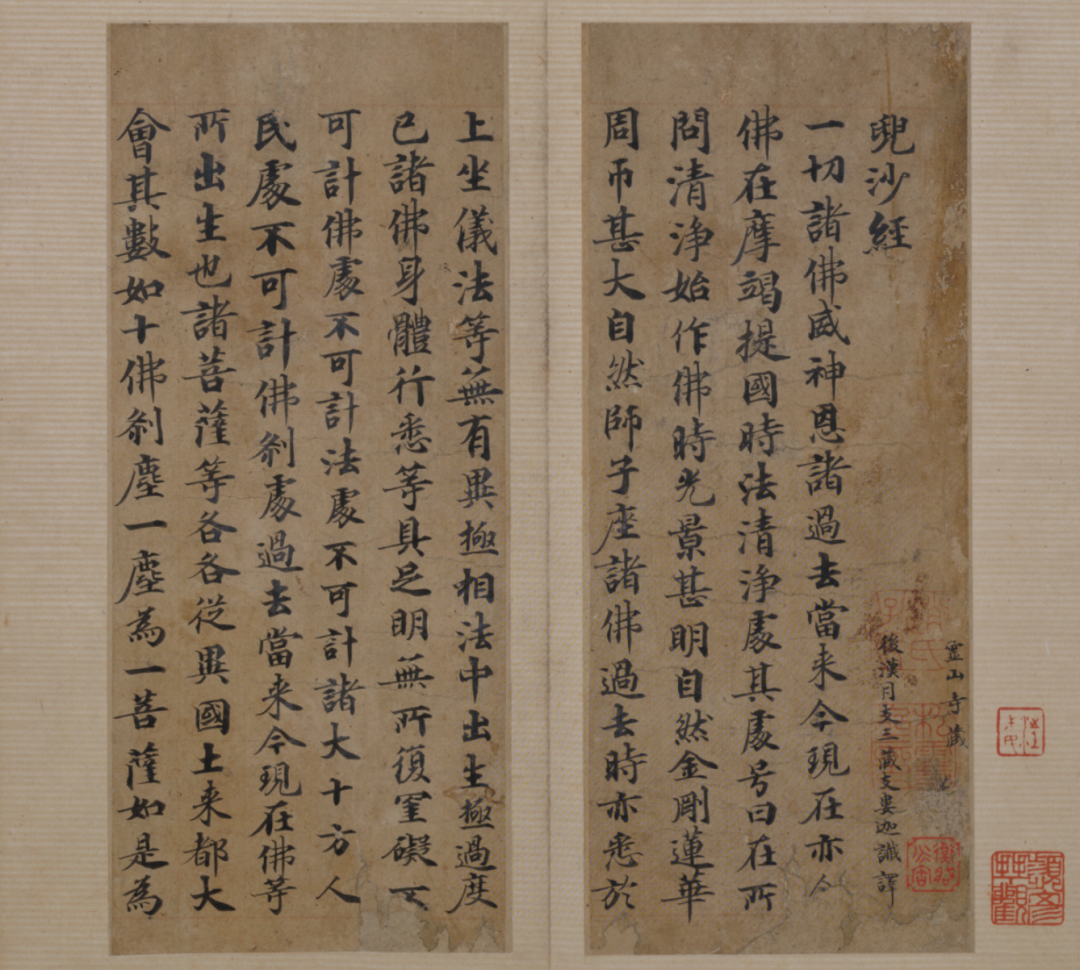 靈山寺藏
兜沙經
後漢月支三藏支婁迦讖譯
一切諸佛威神恩諸過去當来今現在亦令
佛在摩竭提國時法清淨處其處号曰在所
問清淨始作佛時光景甚明自然金剛蓮華
周帀甚大自然師子座諸佛過去時亦悉於
上坐儀法等無有異極相法中出生極過度
已諸佛身體行悉等具足明無所復罣礙不
可計佛處不可計法處不可計諸大十方人
民處不可計佛剎處過去當来今現在佛等
所出生也諸菩薩等各各從異國土来都大
會其數如十佛剎塵一塵為一菩薩如是為